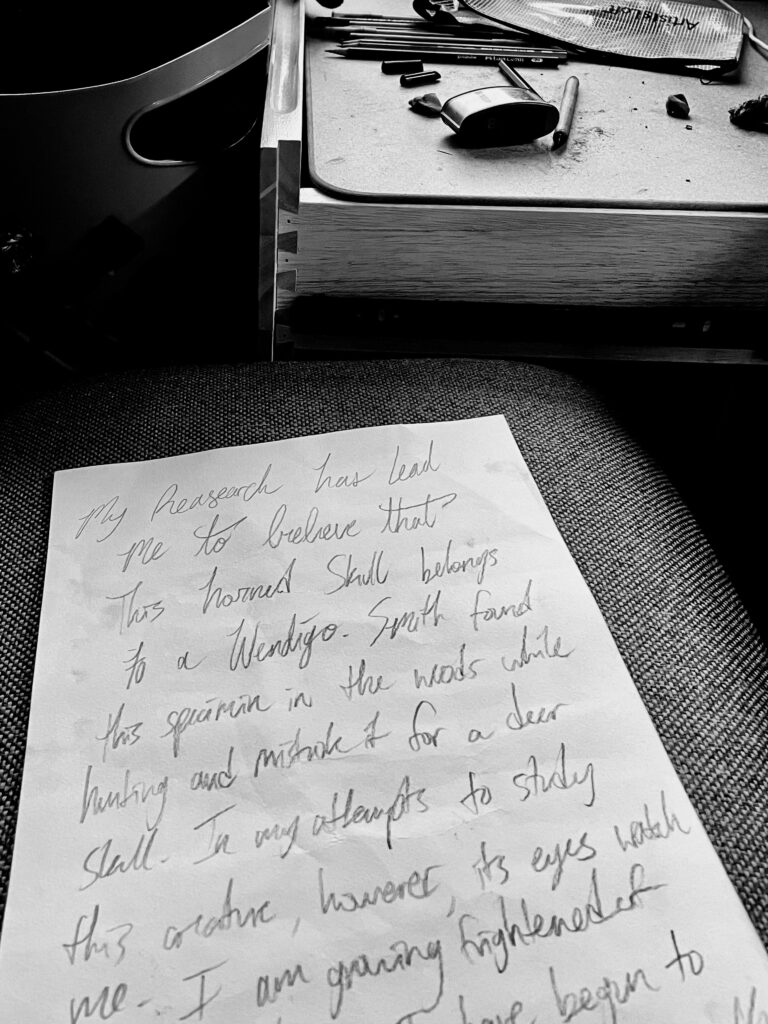 Artist's Loft
My Reasearch has lead
me to believe that
This horned Skull belongs
to a Wendigo. Smith found
this specimin in the woods while
hunting and mistook it for a deer
skull. In my attempts to study
this creature, however, its eyes watch
me. I am growing frightened of
I have begun to